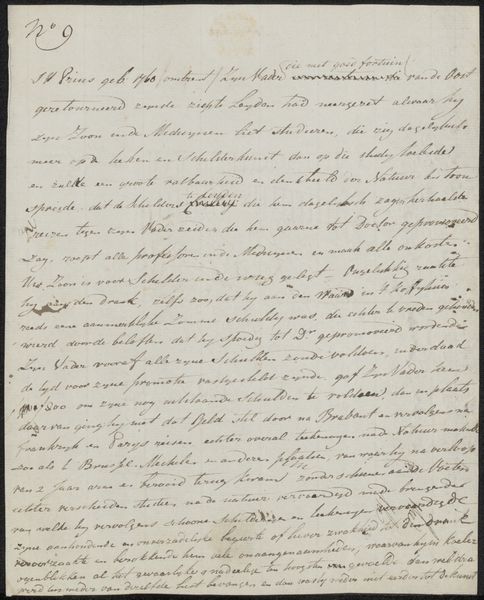 No 9
die met goed fortuin
J H Prins geb. 1760 omtrent / Zijn Vader van de Oost
geretourneerd zynde zich te Leyden had neergezet alwaar hy
zyn Zoon in de Medicynen liet studeeren, die zig dagelyks
meer op de teeken en Schilderkunst dan op die study toelegde
en zulke een groote vatbaarheid en denkbeeld voor Natuur ten toon
spreide, dat de Schilders te Leyden die hem dagelyks zagen herhaalde
reizen tegen zyn Vader zeiden die hem gaarne tot Doctor gepromoveerd
zag, roept alle professoren in de Medicynen en maak alle onkosten
Uw Zoon is voor Schilder in de wieg gelegt. Ongelukkig raakte
hy aan den drank, zelfs zoo, dat hy aan den Waard in 't Koffyhuis
reeds eene aanmerkelyke Somme schuldig was, die echter te vreden gehouden
wierd door de beloften dat hy spoedig tot Dr gepromoveerd wordende
Zyn Vader vooraf alle zyne Schulden zoude voldoen, inderdaad
de tyd voor zyne promotie vastgesteld zynde, gaf zyn Vader hem
om zyne nog uitstaande Schulden te voldoen, dan in plaats
daar van ging hy met dat Geld stil door na Braband en vervolgens na
Frankryk en Parys reisen echter overal teekeningen na de Natuur makende
zoo als te Brussel, Mechelen en andere plaatsen van waar hy na verloop
van 2 Jaar arm en berooid terug kwam zonder schoenen aan de Voeten
echter verscheiden studien na de natuur vervaardigd mede brengende
van welke hy vervolgens schoone Schilderyen en teekeningen vervaardigde
zyne aanhoudende en onverzadelyke begeerte of liever zwakheid tot den drank
veroorzaakte en berokkende hem vele onaangenaamheden, waarvan hy in koele
oogenblikken al het gevaarlyke & nadeelige ten hoogsten gevoelde dan weldra
werd hy weder van dezelfde lust bevangen en dan was hy weder niet